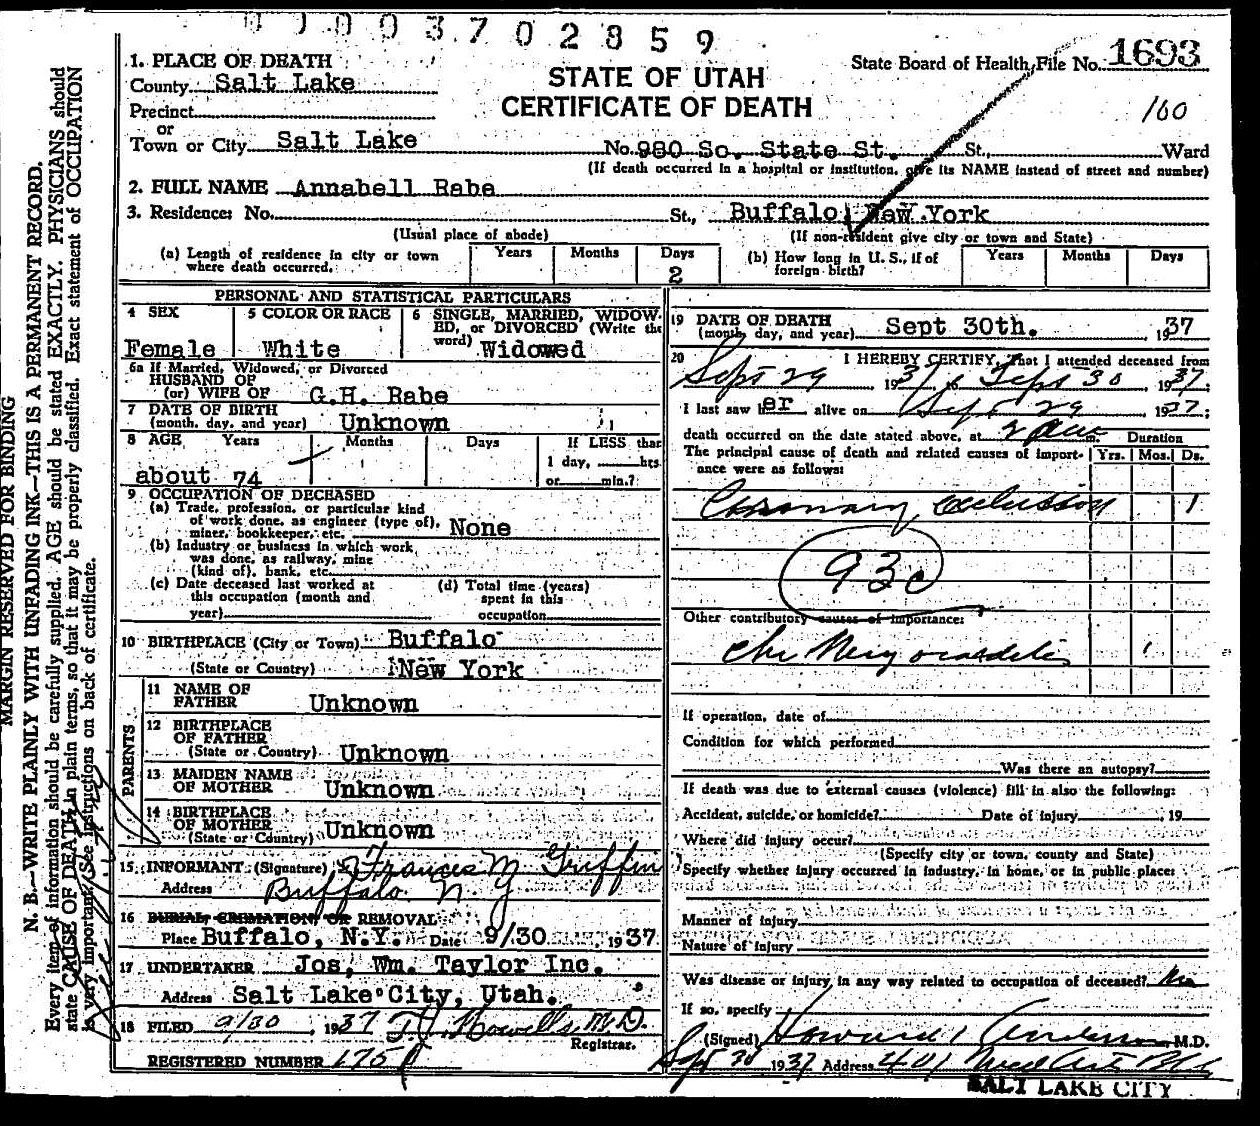 0003702859
1. PLACE OF DEATH
STATE OF UTAH
CERTIFICATE OF DEATH
State Board of Health File No. 1693
160
County Salt Lake
Precinct
or
Town or City Salt Lake No. 980 So. State St. St., Ward
(If death occurred in a hospital or institution, give its NAME instead of street and number)
2. FULL NAME Annabell Rabe
3. Residence: No. St., Buffalo, New York
(Usual place of abode) (If non-resident give city or town and State)
(a) Length of residence in city or town where death occurred. Years Months Days 2
(b) How long in U. S., if of foreign birth? Years Months Days
PERSONAL AND STATISTICAL PARTICULARS
4 SEX Female
5 COLOR OR RACE White
6 SINGLE, MARRIED, WIDOWED, or DIVORCED (Write the word) Widowed
6a If Married, Widowed, or Divorced
HUSBAND OF
(or) WIFE OF G.H. Rabe
7 DATE OF BIRTH
(month, day, and year) Unknown
8 AGE Years Months Days If LESS than
1 day, hrs.
or min.?
about 74
9 OCCUPATION OF DECEASED
(a) Trade, profession, or particular kind
of work done, as engineer (type of),
miner, bookkeeper, etc. None
(b) Industry or business in which work
was done, as railway, mine
(kind of), bank, etc.
(c) Date deceased last worked at
this occupation (month and
year)
(d) Total time (years)
spent in this
occupation
10 BIRTHPLACE (City or Town) Buffalo
(State or Country) New York
PARENTS
11 NAME OF
FATHER Unknown
12 BIRTHPLACE
OF FATHER
(State or Country) Unknown
13 MAIDEN NAME
OF MOTHER Unknown
14 BIRTHPLACE
OF MOTHER
(State or Country) Unknown
15 INFORMANT (Signature) Frances M Griffin
Address Buffalo N Y
16 BURIAL, CREMATION, OR REMOVAL
Place Buffalo, N.Y. Date 9/30 1937
17 UNDERTAKER Jos. Wm. Taylor Inc.
Address Salt Lake City, Utah.
18 FILED 9/30, 1937 Howells, M.D.
Registrar.
REGISTERED NUMBER
19 DATE OF DEATH
(month, day, and year) Sept 30th. 1937
20 I HEREBY CERTIFY, That I attended deceased from
Sept 29 1937 to Sept 30 1937;
I last saw her alive on Sept 29 1937;
death occurred on the date stated above, at 2 am m. Duration
The principal cause of death and related causes of importance were as follows: Yrs. Mos. Ds.
Coronary Occlusion 1
93c
Other contributory causes of importance:
Chr Myocarditis
If operation, date of
Condition for which performed
Was there an autopsy?
If death was due to external causes (violence) fill in also the following:
Accident, suicide, or homicide? Date of injury , 19
Where did injury occur?
(Specify city or town, county and State)
Specify whether injury occurred in industry, in home, or in public place:
Manner of injury
Nature of injury
Was disease or injury in any way related to occupation of deceased? No
If so, specify
(Signed) Howard Anderson M.D.
Sept 30 1937 Address 401 Med Arts Bldg
SALT LAKE CITY
MARGIN RESERVED FOR BINDING
N. B.—WRITE PLAINLY WITH UNFADING INK—THIS IS A PERMANENT RECORD.
Every item of information should be carefully supplied. AGE should be stated EXACTLY. PHYSICIANS should
state CAUSE OF DEATH in plain terms, so that it may be properly classified. Exact statement of OCCUPATION
is very important. (See instructions on back of certificate.